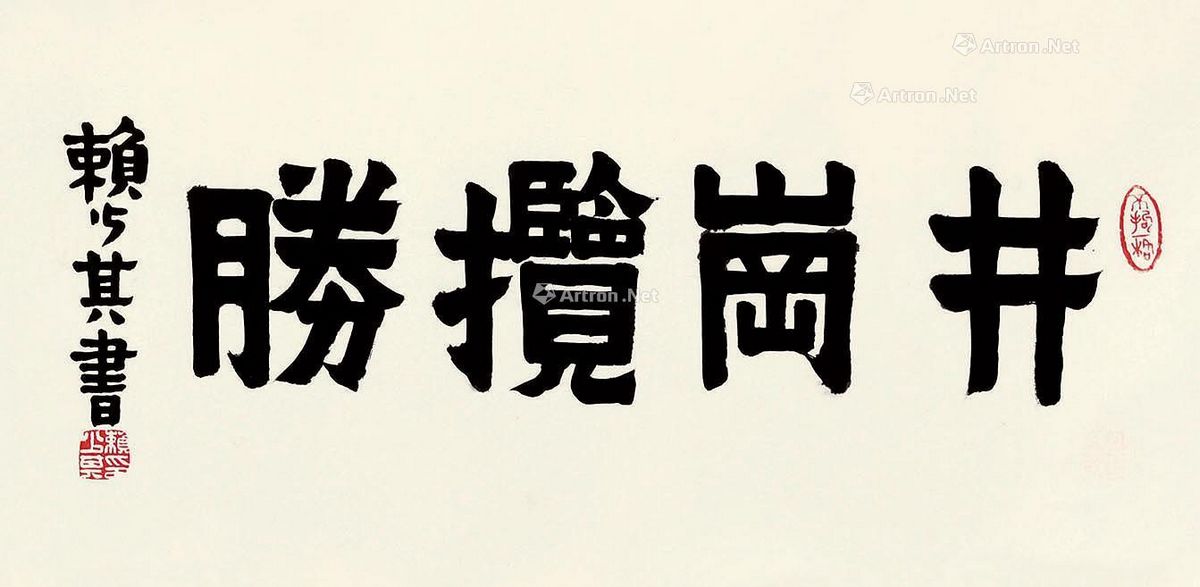 井崗攬勝
賴少其書
Artron.Net
Artron.Net
Artron.Net